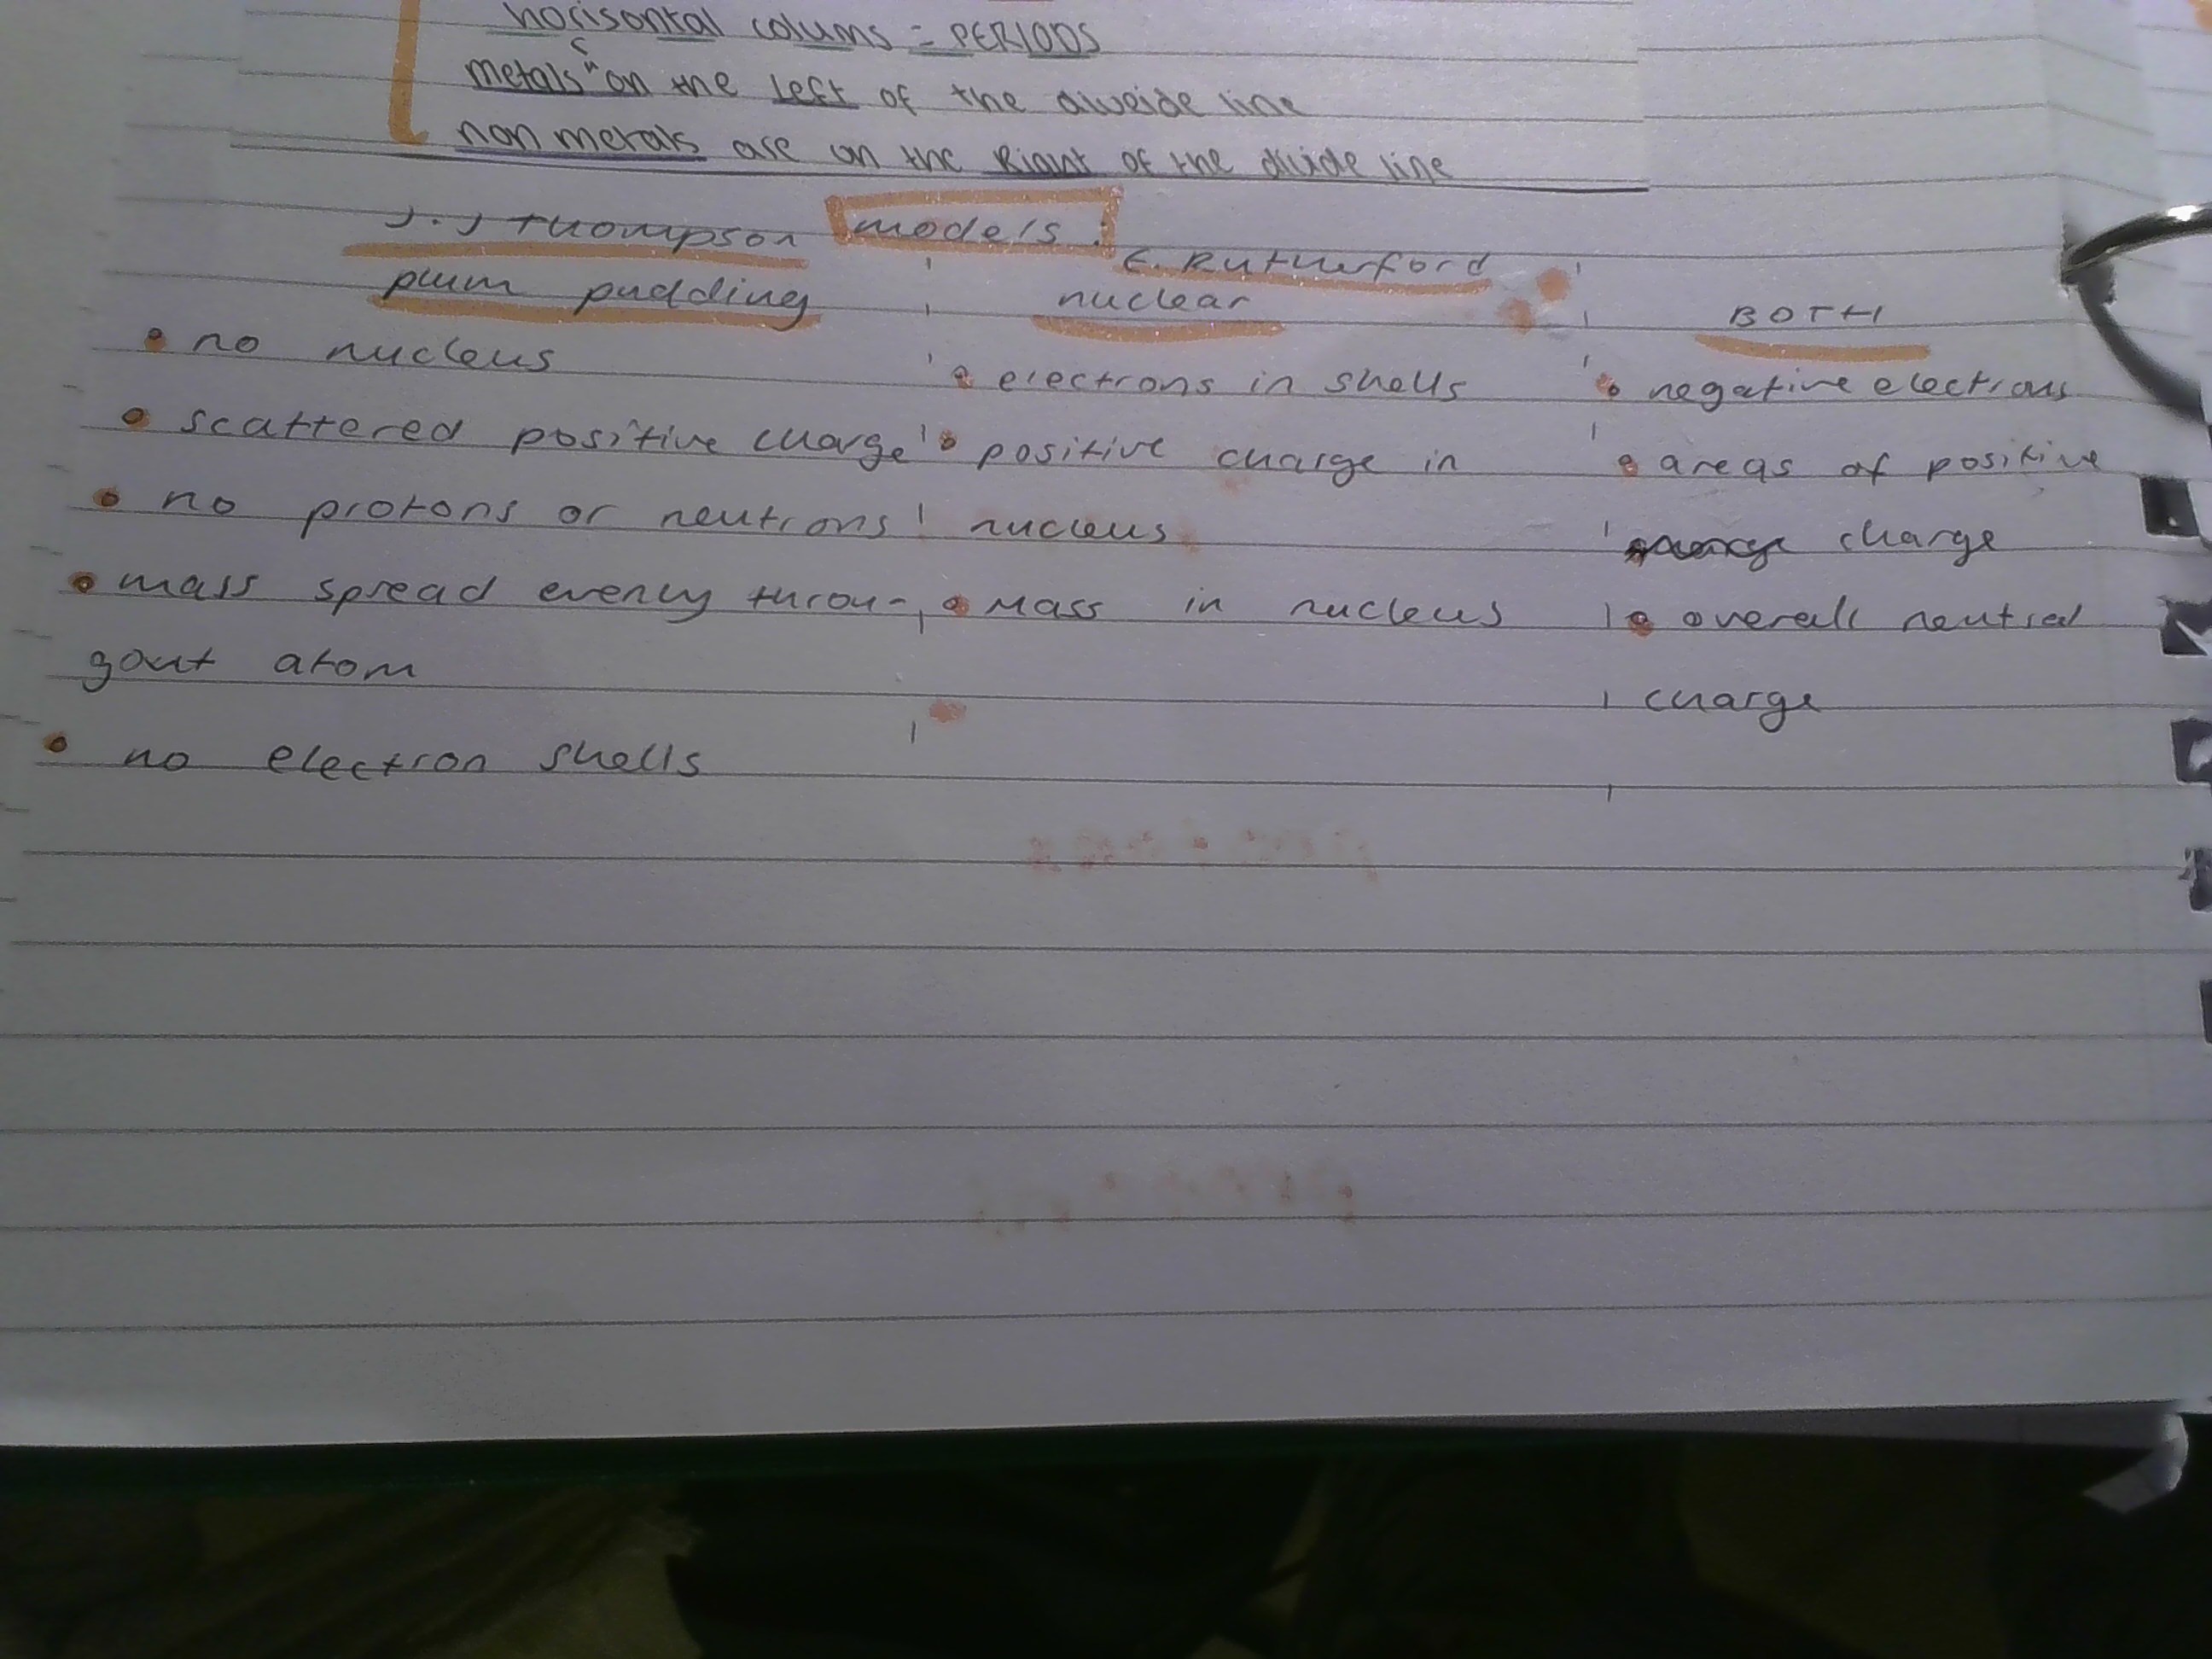 horisontal colums = PERIODS
metals on the left of the diveide line
non metals are on the Right of the divide line
J.J Thompson models:
E. Rutherford
plum pudding nuclear BOTH
• no nucleus
• electrons in shells • negative electrons
• scattered positive charge • positive charge in • areas of positive
• no protons or neutrons nucleus charge
• mass spread evenly throu- • Mass in nucleus • overall neutral
gout atom charge
• no electron shells